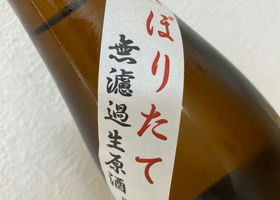 ぼりたて
無濾過生原酒